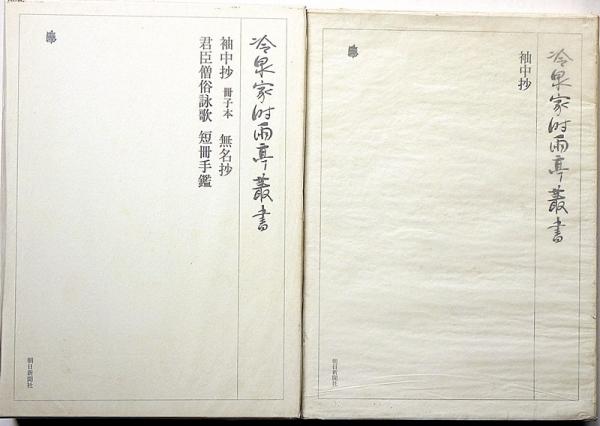 冷泉家時雨亭叢書
袖中抄 冊子本 無名抄
君臣僧俗詠歌 短冊手鑑
朝日新聞社
冷泉家時雨亭叢書
袖中抄
朝日新聞社